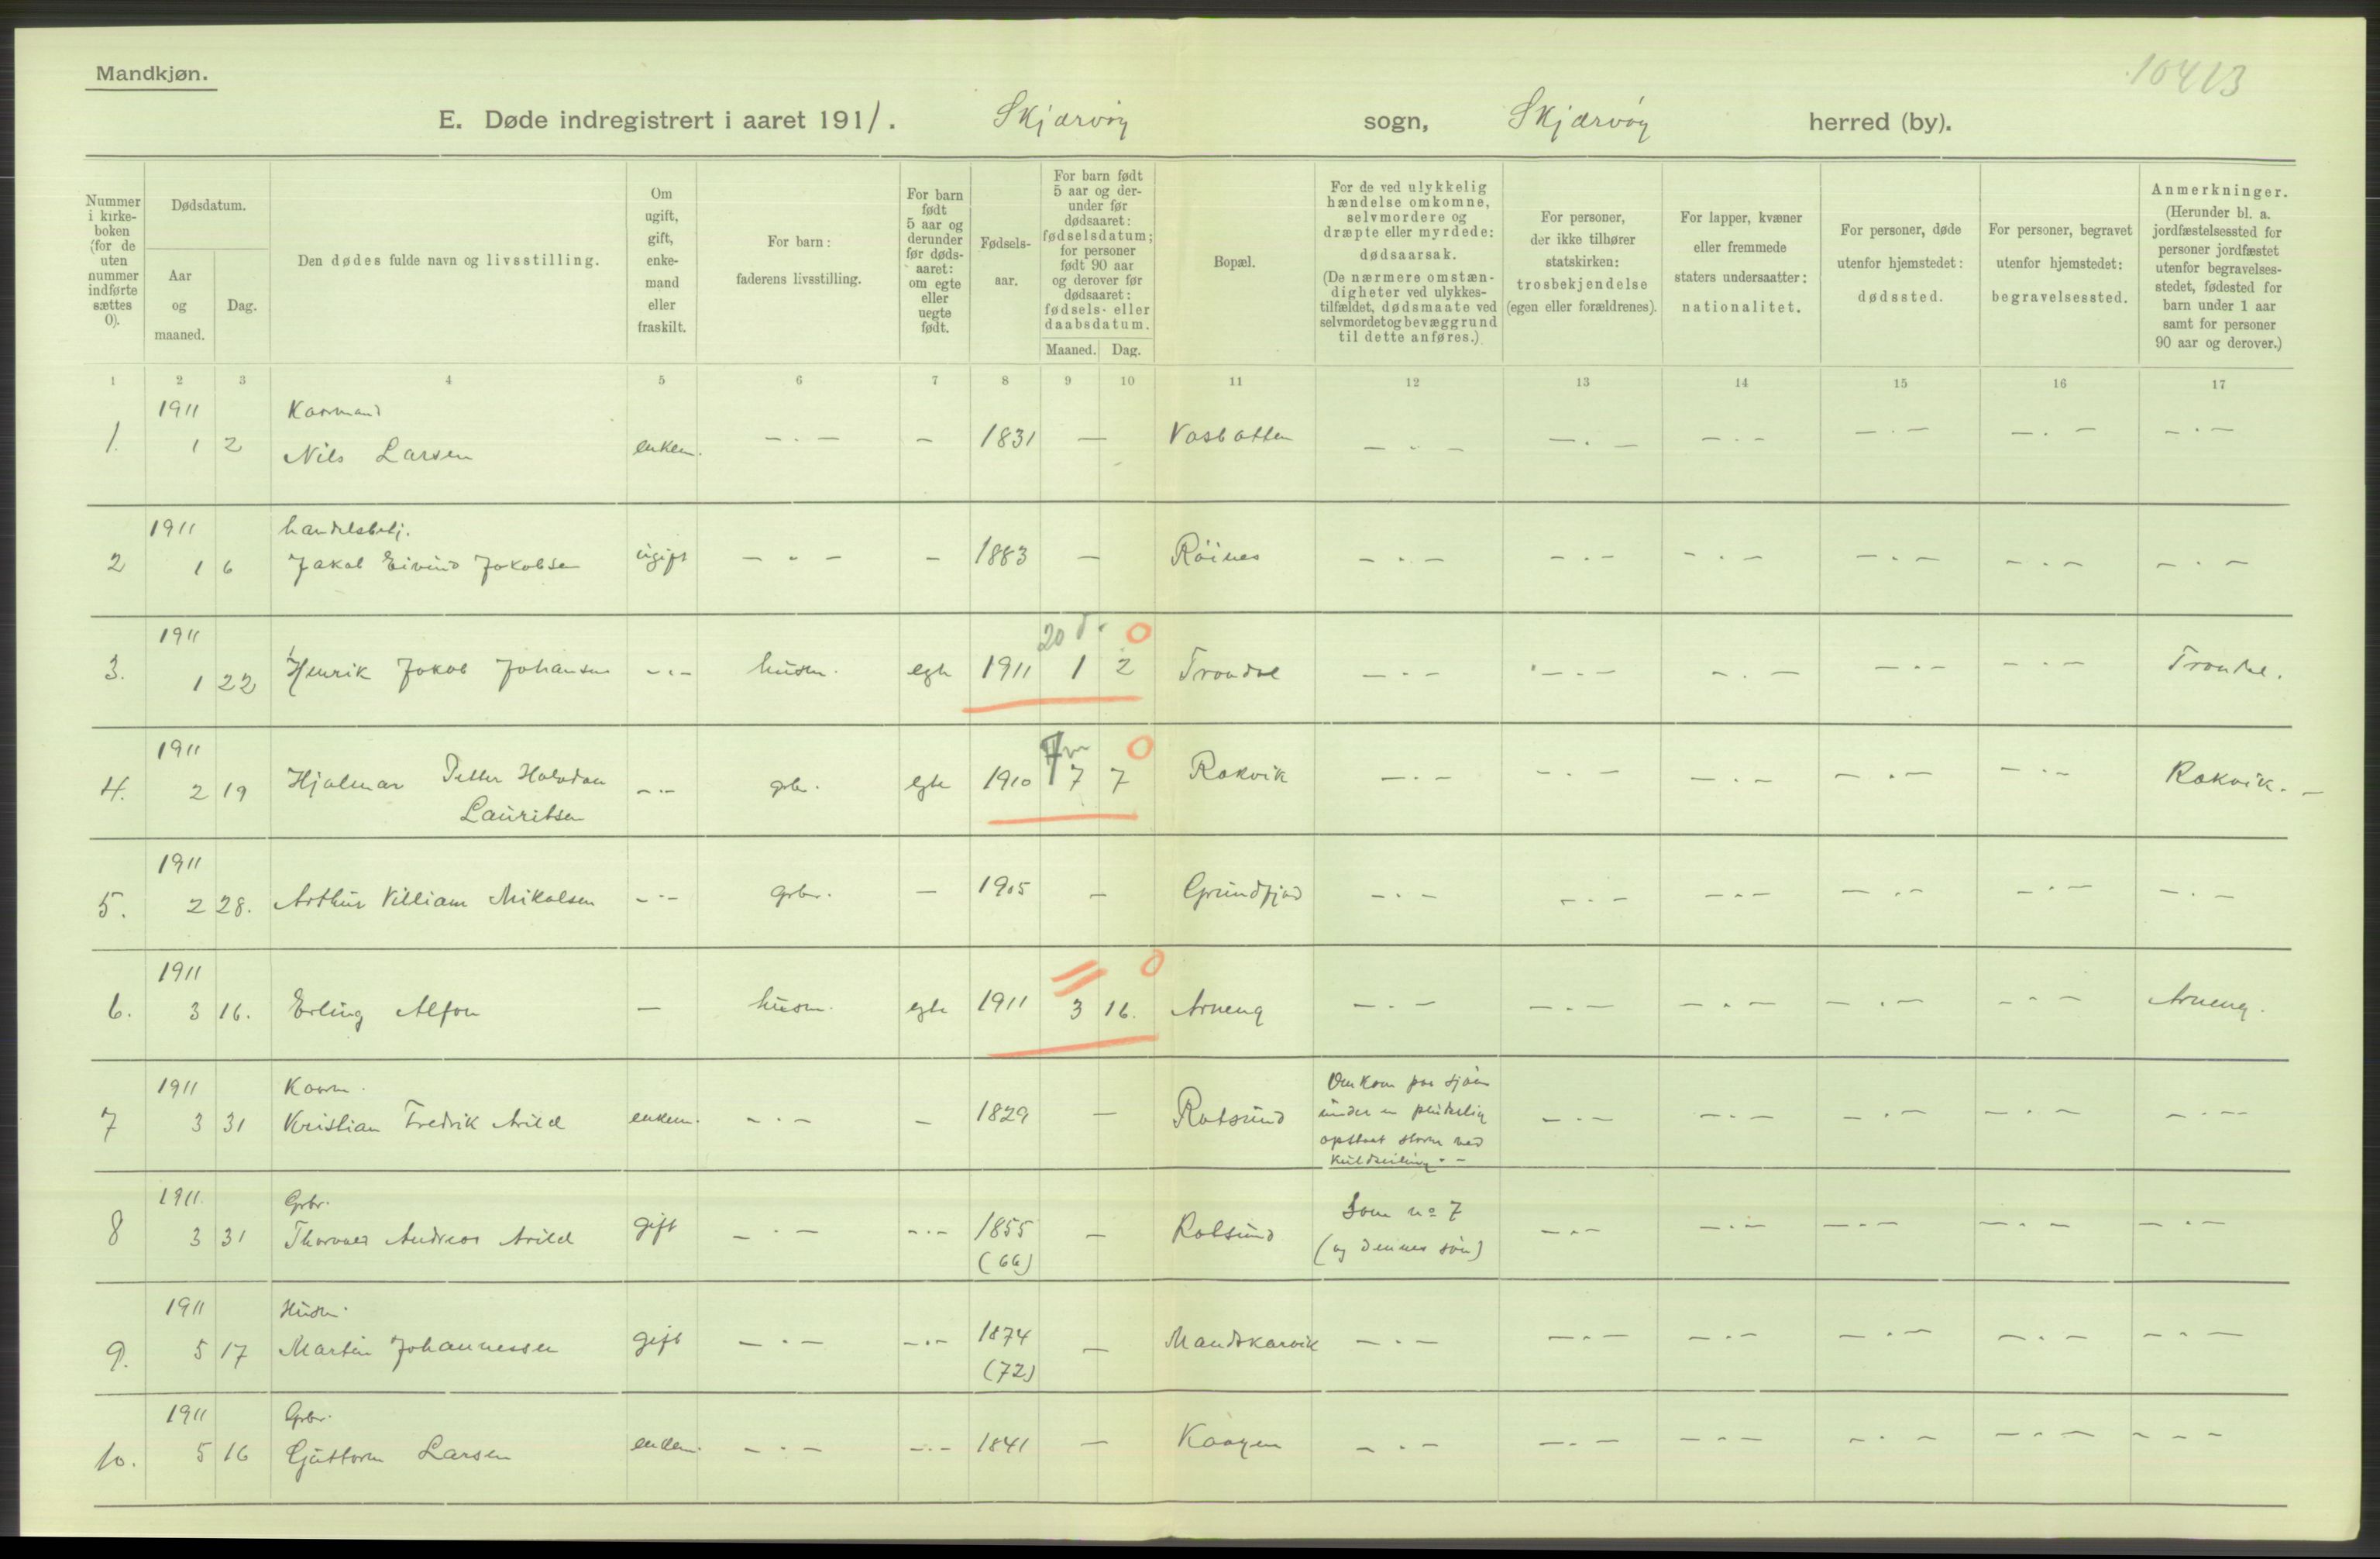 Mandkjøn.
10413
E. Døde indregistrert i aaret 1911. Skjærvöy sogn, Skjærvöy herred (by).
Nummer i kirke-boken (for de uten nummer indførte sættes 0).
Dødsdatum.
Aar og maaned.
Dag.
Den dødes fulde navn og livsstilling.
Om ugift, gift, enke-mand eller fraskilt.
For barn: faderens livsstilling.
For barn født 5 aar og derunder før døds-aaret: om egte eller uegte født.
Fødsels-aar.
For barn født 5 aar og der-under før dødsaaret: fødselsdatum; for personer født 90 aar og derover før dødsaaret: fødsels- eller daabsdatum.
Maaned. Dag.
Bopæl.
For de ved ulykkelig hændelse omkomne, selvmordere og dræpte eller myrdede: dødsaarsak. (De nærmere omstæn-digheter ved ulykkes-tilfældet, dødsmaate ved selvmord et og bevæggrund til dette anføres.)
For personer, der ikke tilhører statskirken: trosbekjendelse (egen eller forældrenes).
For lapper, kvæner eller fremmede staters undersaatter: nationalitet.
For personer, døde utenfor hjemstedet: dødssted.
For personer, begravet utenfor hjemstedet: begravelsessted.
Anmerkninger. (Herunder bl. a. jordfæstelsessted for personer jordfæstet utenfor begravelses-stedet, fødested for barn under 1 aar samt for personer 90 aar og derover.)
1 2 3 4 5 6 7 8 9 10 11 12 13 14 15 16 17
1911 Kaarmand
1. 1 2 Nils Larsen enkem. – . – – 1831 – Vasbotten – . – – . – – . – – . – – . – – . –
1911 handelsbetj.
2 1 6 Jakob Eivind Jakobsen ugift – . – – 1883 – Röines – . – – . – – . – – . – – . – – . –
1911 20 d. 0
3. 1 22 Henrik Jakob Johansen – . – husm. egte 1911 1 2 Trondal – . – – . – – . – – . – – . – Trondal.
1911 7 m 0
4. 2 19 Hjalmar Petter Halvdan Lauritsen – . – gbr. egte 1910 7 7 Rakvik – . – – . – – . – – . – – . – Rakvik. –
1911
5. 2 28. Arthur Villiam Mikalsen – . – Grbr. – 1905 – Grundfjord – . – – . – – . – – . – – . – – . –
1911 0
6. 3 16. Erling Alfon – husm. egte 1911 3 16. Arnöy – . – – . – – . – – . – – . – Arnöy.
1911 Kaarm.
7 3 31 Kristian Fredrik Arild enkem. – . – – 1829 – Rotsund Omkom paa sjöen under en pludselig opstaaet storm ved kuldseiling. – – . – – . – – . – – . – – . –
1911. Grbr.
8 3 31 Thorvald Andreas Arild gift – . – – . – 1855 (66) – Rotsund Som no 7 (og dennes sön) – . – – . – – . – – . – – . –
1911 Husm.
9. 5 17 Martin Johannessen gift – . – – . – 1874 (72) – Mandskarvik – . – – . – – . – – . – – . – – . –
1911 Grbr.
10. 5 16 Guttorm Larsen enkem. – . – – . – 1841 – Kaagen – . – – . – – . – – . – – . – – – –